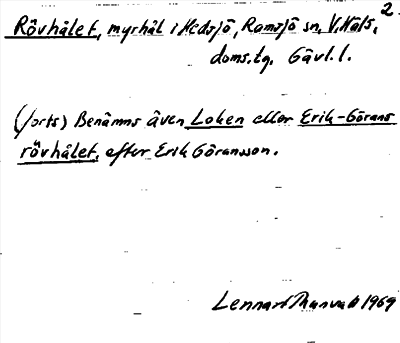 2.
Rövhålet, myrhål i Hedsjö, Ramsjö sn, V. Häls.
doms.tg. Gävl. l.
(forts) Benämns även Loken eller Erik-Görans
rövhålet, efter Erik Göransson.
Lennart 1969